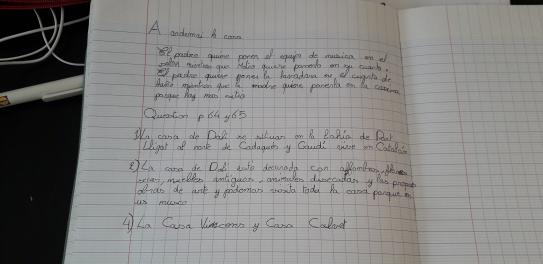 A casa
El padre quiere poner el equipo de musica en el
salon mientras que quiere ponerlo en su cuarto.
El padre quiere poner la lavadora en el cuarto de
baño mientras que la madre quiere ponerla en la cocina
porque hay mas sitio
Question p 64 y 65
1) La casa de Dalí se situar en la bahía de Port
Lligat al norte de Cadaqués y Gaudí vivre en
2) La casa de Dalí está decorada con alfombras,
muebles antiguos, animales disecados y las
obras de arte y podemos visita toda la casa porque
un museo
4) La Casa Vincens y Casa Calvet